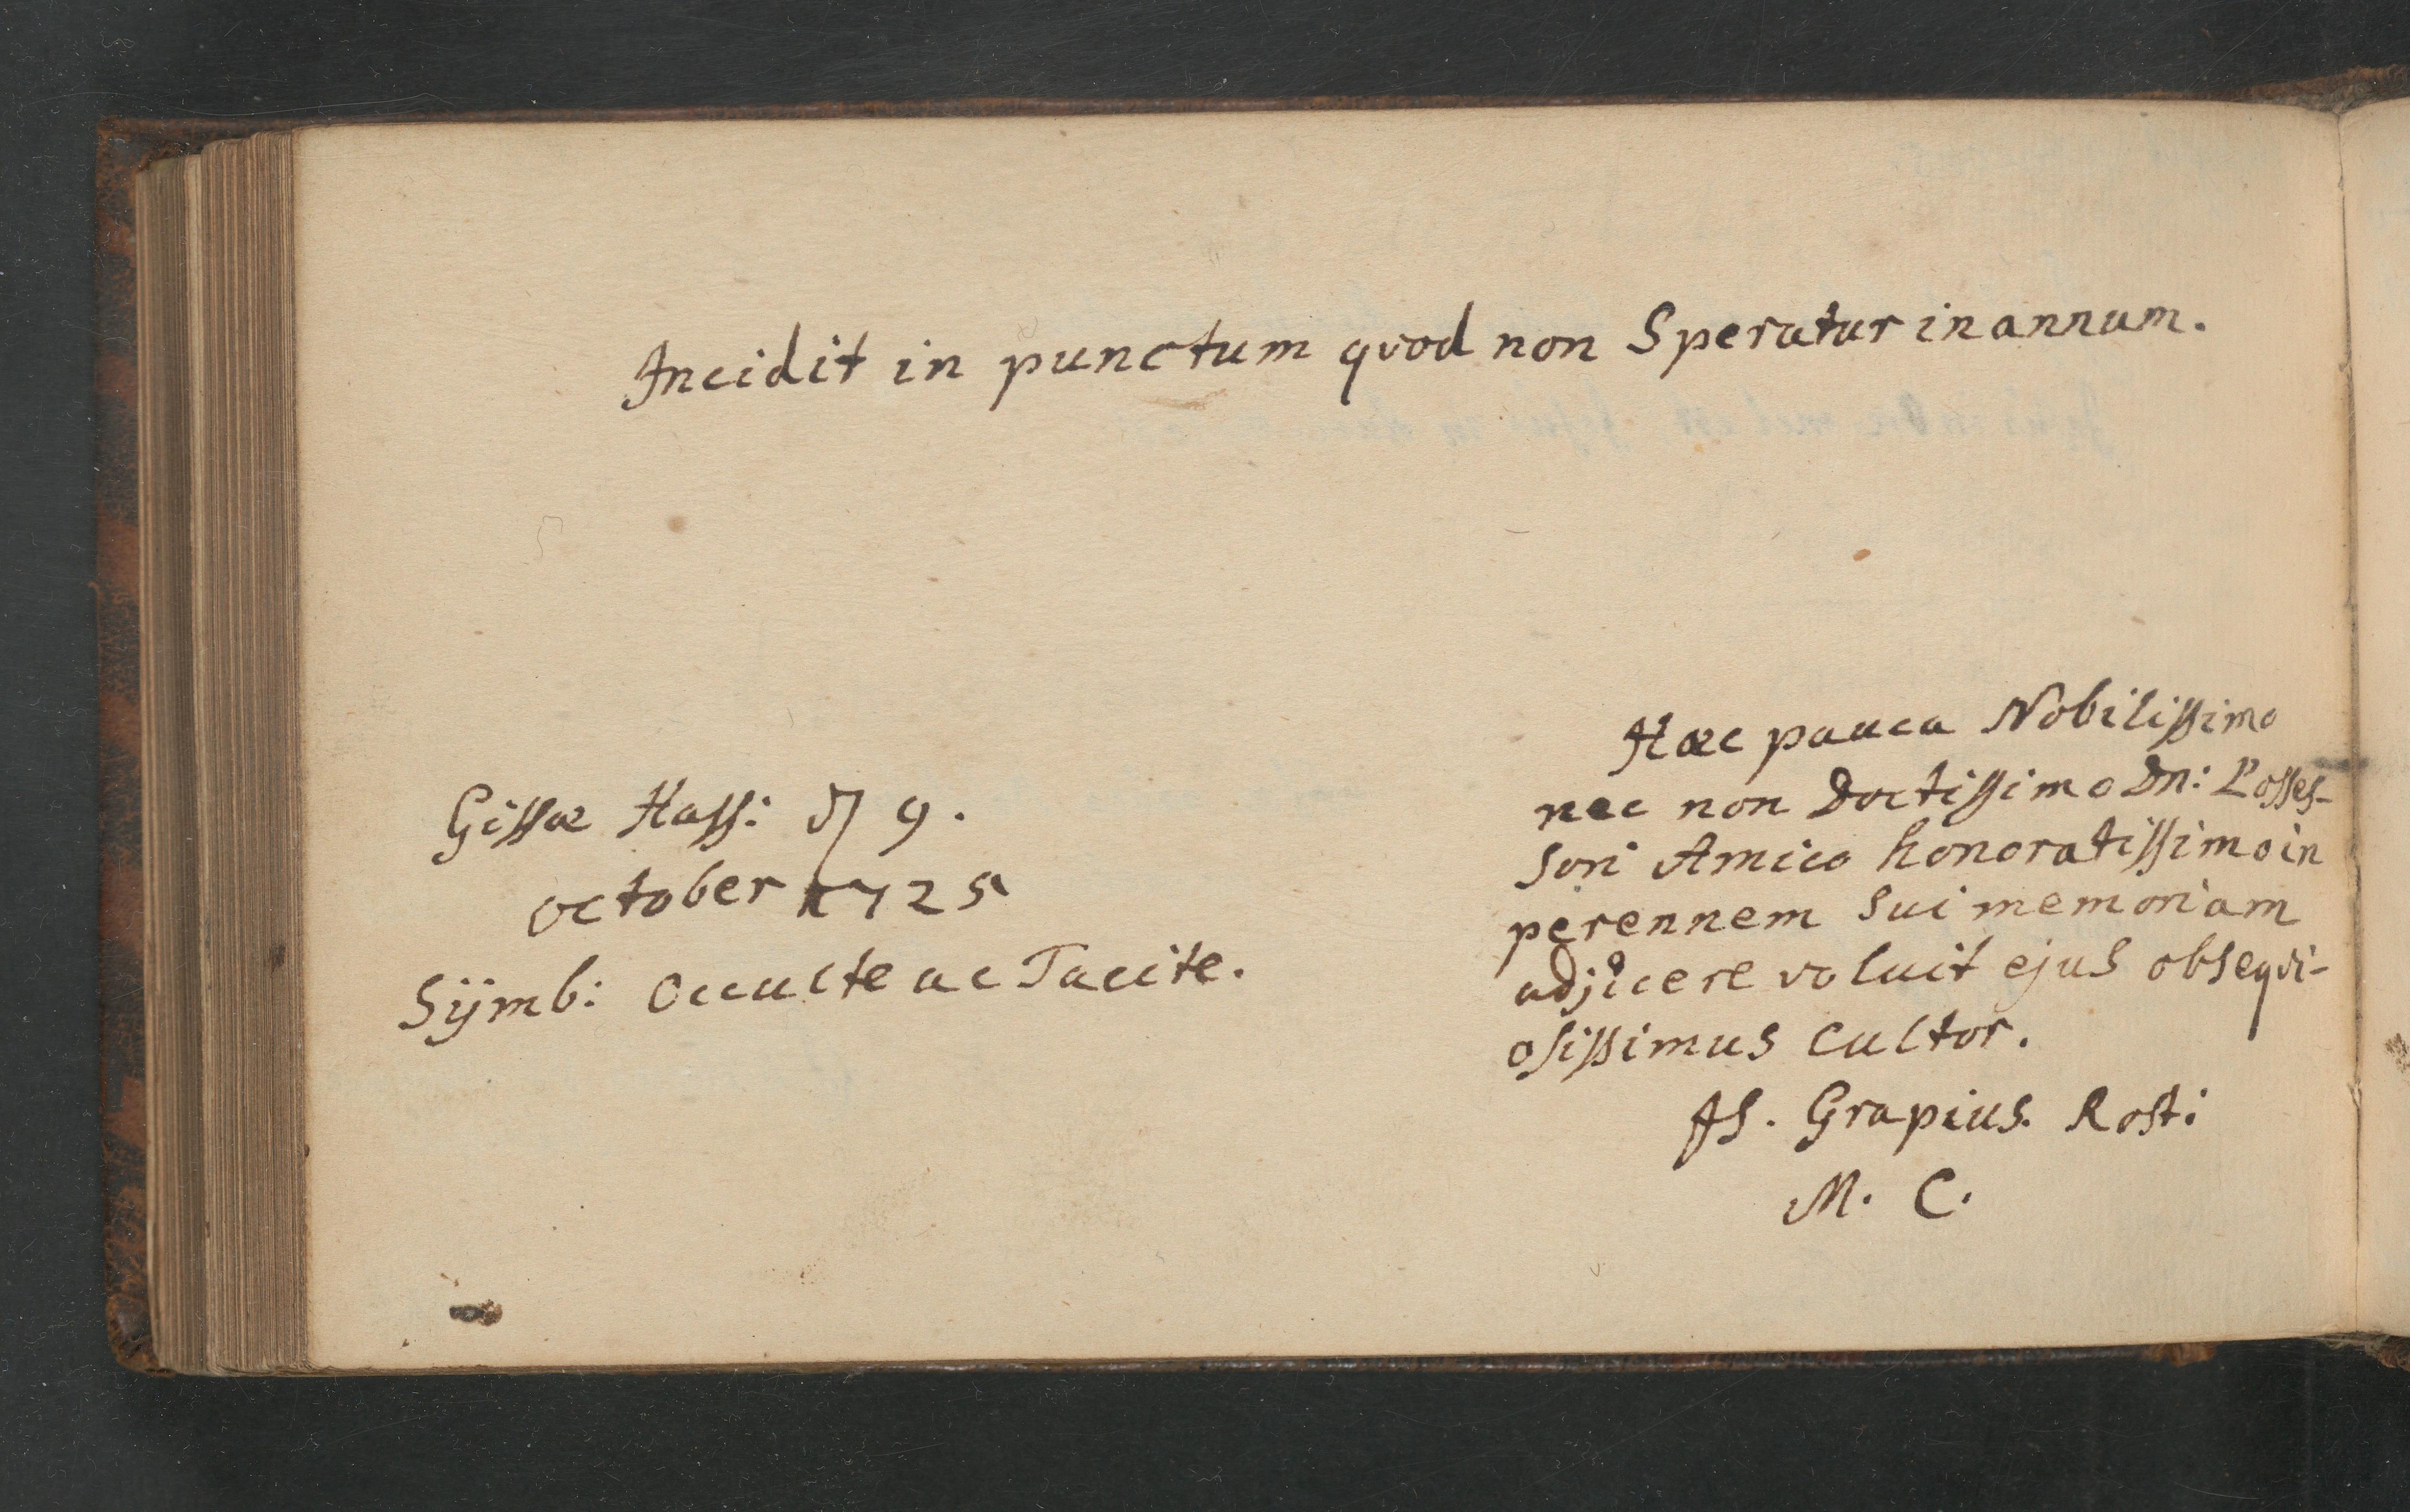 Incidit in punctum qvod non Speratur in annum.
Gissæ Hass: d 9.
october 1725
Sÿmb: occulte ac Tacite.
Hæc pauca Nobilissimo
nec non Doctissimo Dn: Posses-
sori Amico honoratissimo in
perennem sui memoriam
adjicere voluit ejus obseqvi-
osissimus cultor.
JS. Grapius. Rost:
M. C.